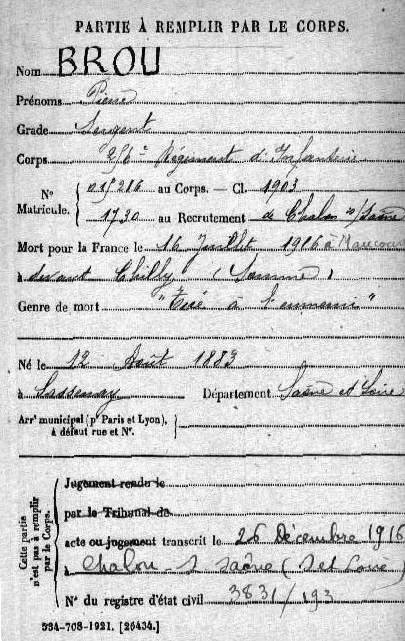 PARTIE À REMPLIR PAR LE CORPS.
Nom BROU
Prénoms Pierre
Grade Sergent
Corps 256e Régiment d'Infanterie
N° Matricule. 015216 au Corps. — Cl. 1903
1730 au Recrutement de Chalon s/Saône
Mort pour la France le 16 Juillet 1916 à
à devant Chilly (Somme)
Genre de mort "Tué à l'ennemi"
Né le 12 Août 1883
à Sassenay Département Saône et Loire
Arrt municipal (pr Paris et Lyon),
à défaut rue et N°.
Cette partie n'est pas à remplir par le Corps.
Jugement rendu le
par le Tribunal de
acte ou jugement transcrit le 26 Décembre 1916
à Chalon s Saône (S et Loire)
N° du registre d'état civil 3831/193
534-708-1921. [26434.]